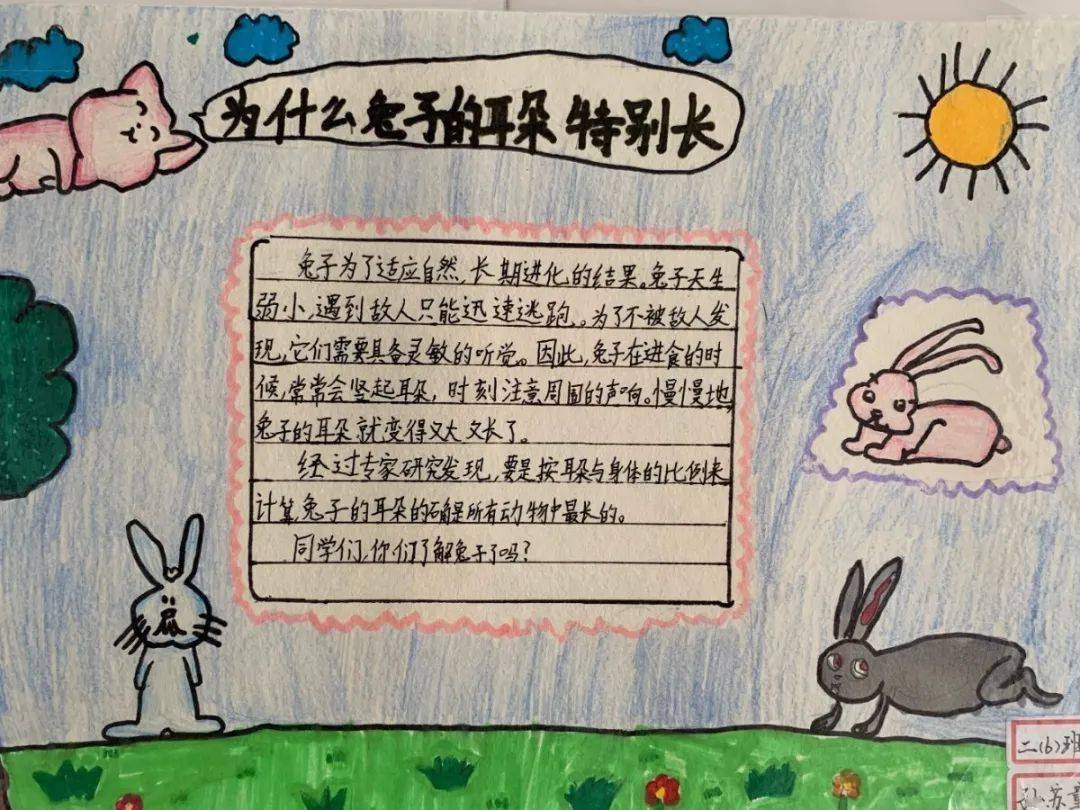 为什么兔子的耳朵特别长
兔子为了适应自然,长期进化的结果。兔子天生
弱小,遇到敌人只能迅速逃跑。为了不被敌人发
现,它们需要具备灵敏的听觉。因此,兔子在进食的时
候,常常会竖起耳朵,时刻注意周围的声响。慢慢地,
兔子的耳朵就变得又大又长了。
经过专家研究发现,要是按耳朵与身体的比例来
计算,兔子的耳朵的确是所有动物中最长的。
同学们,你们了解兔子了吗?
二(6)班
苏